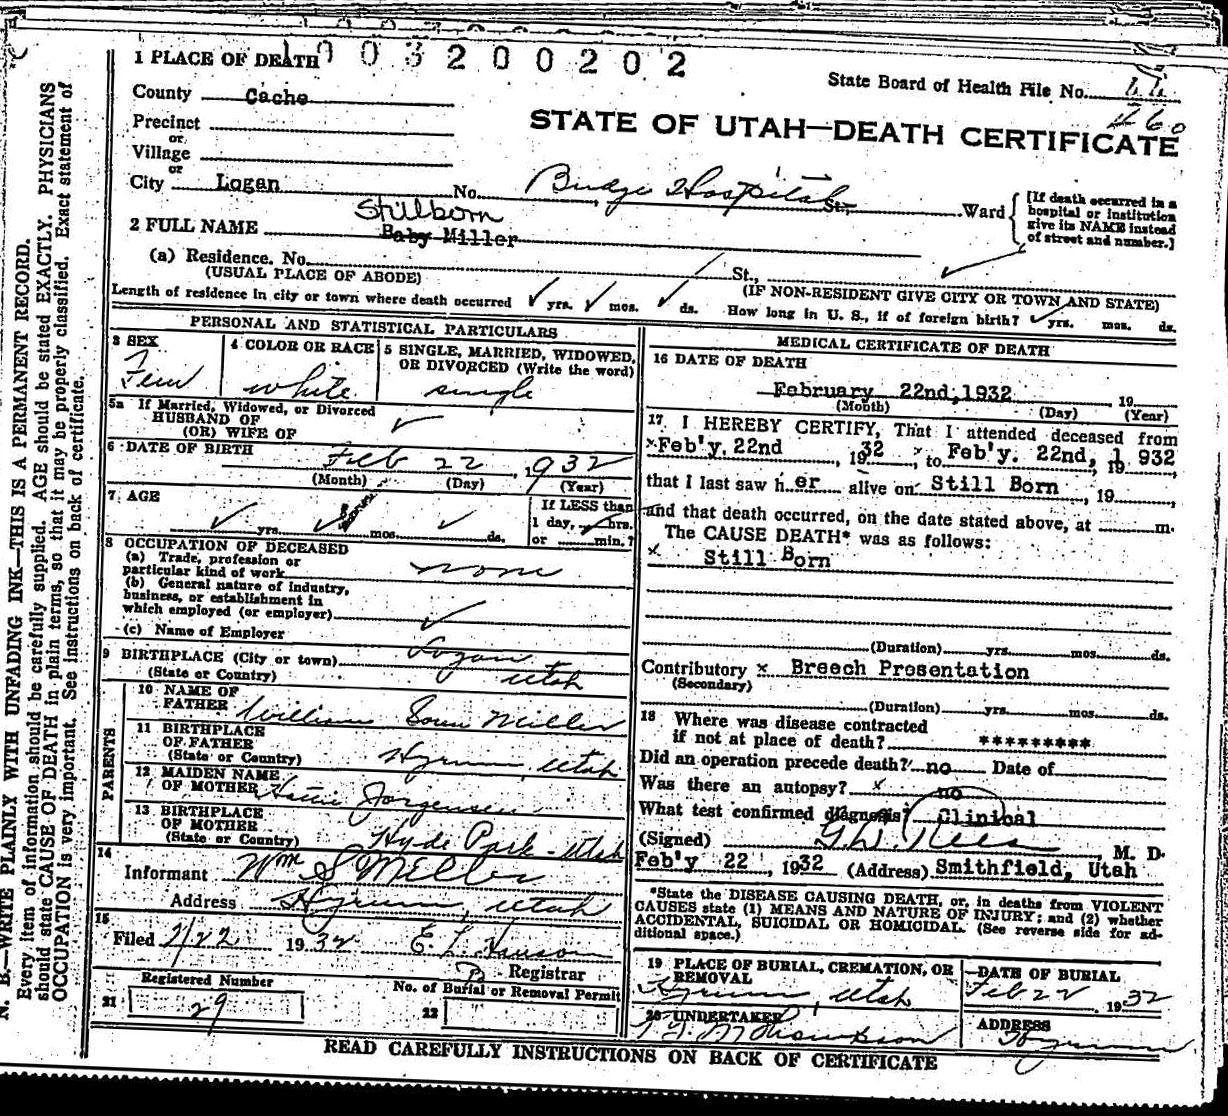 1 PLACE OF DEATH 1003200202
State Board of Health File No.
County Cache
260
STATE OF UTAH—DEATH CERTIFICATE
Precinct
or
Village
or
City Logan No. Budge Hospital St., Ward
[If death occurred in a hospital or institution give its NAME instead of street and number.]
Stillborn
2 FULL NAME Baby Miller
(a) Residence. No. St.,
(USUAL PLACE OF ABODE) (IF NON-RESIDENT GIVE CITY OR TOWN AND STATE)
Length of residence in city or town where death occurred yrs. mos. ds. How long in U. S., if of foreign birth? yrs. mos. ds.
PERSONAL AND STATISTICAL PARTICULARS
3 SEX
Fem
4 COLOR OR RACE
white
5 SINGLE, MARRIED, WIDOWED,
OR DIVORCED (Write the word)
single
5a If Married, Widowed, or Divorced
HUSBAND OF
(OR) WIFE OF
6 DATE OF BIRTH Feb 22, 1932
(Month) (Day) (Year)
7 AGE
yrs. mos. ds.
If LESS than
1 day, hrs.
or min.?
8 OCCUPATION OF DECEASED
(a) Trade, profession or
particular kind of work none
(b) General nature of industry,
business, or establishment in
which employed (or employer)
(c) Name of Employer
9 BIRTHPLACE (City or town) Logan
(State or Country) Utah
PARENTS
10 NAME OF
FATHER William Miller
11 BIRTHPLACE
OF FATHER
(State or Country) Hyrum, Utah
12 MAIDEN NAME
OF MOTHER Jorgensen
13 BIRTHPLACE
OF MOTHER
(State or Country) Hyde Park - Utah
14
Informant Wm S Miller
Address Hyrum, Utah
15
Filed 2/22 1932
Registrar
Registered Number
21 29
No. of Burial or Removal Permit
22
MEDICAL CERTIFICATE OF DEATH
16 DATE OF DEATH
February 22nd, 1932 , 19
(Month) (Day) (Year)
17 I HEREBY CERTIFY, That I attended deceased from
x Feb'y. 22nd , 1932 x, to Feb'y. 22nd, 1932
that I last saw h er alive on Still Born , 19
and that death occurred, on the date stated above, at m.
The CAUSE DEATH* was as follows:
x Still Born
(Duration) yrs. mos. ds.
Contributory x Breech Presentation
(Secondary)
(Duration) yrs. mos. ds.
18 Where was disease contracted
if not at place of death? *********
Did an operation precede death? no Date of
Was there an autopsy? x no
What test confirmed diagnosis? Clinical
(Signed) M. D.
Feb'y 22 , 1932 (Address) Smithfield, Utah
*State the DISEASE CAUSING DEATH, or, in deaths from VIOLENT
CAUSES state (1) MEANS AND NATURE OF INJURY; and (2) whether
ACCIDENTAL, SUICIDAL OR HOMICIDAL. (See reverse side for ad-
ditional space.)
19 PLACE OF BURIAL, CREMATION, OR
REMOVAL
Hyrum, Utah
DATE OF BURIAL
Feb 22 1932
20 UNDERTAKER
ADDRESS
Hyrum
READ CAREFULLY INSTRUCTIONS ON BACK OF CERTIFICATE
N. B.—WRITE PLAINLY WITH UNFADING INK—THIS IS A PERMANENT RECORD.
Every item of information should be carefully supplied. AGE should be stated EXACTLY. PHYSICIANS
should state CAUSE OF DEATH in plain terms, so that it may be properly classified. Exact statement of
OCCUPATION is very important. See instructions on back of certificate.